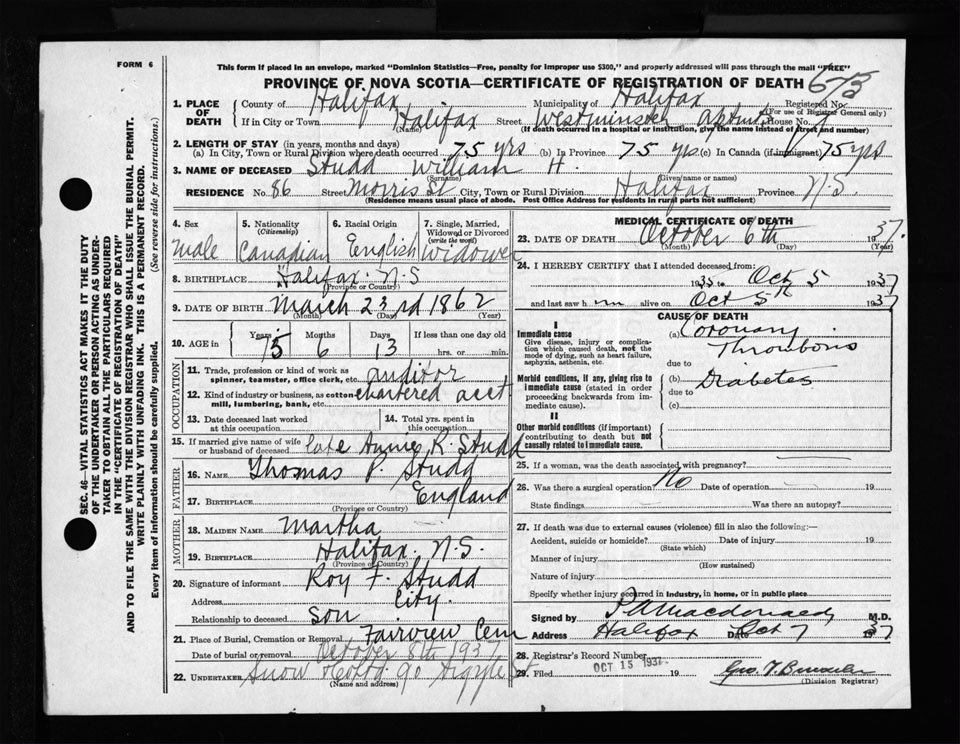 FORM 6
This form if placed in an envelope, marked "Dominion Statistics—Free, penalty for improper use $300," and properly addressed will pass through the mail "FREE"
PROVINCE OF NOVA SCOTIA—CERTIFICATE OF REGISTRATION OF DEATH
673
1. PLACE OF DEATH County of Halifax Municipality of Halifax Registered No.
(For use of Registrar General only)
If in City or Town Halifax Street Westminster House No.
(Name) (If death occurred in a hospital or institution, give the name instead of street and number)
2. LENGTH OF STAY (in years, months and days)
(a) In City, Town or Rural Division where death occurred 75 yrs (b) In Province 75 yrs (c) In Canada (if immigrant) 75 yrs
3. NAME OF DECEASED Studd William H.
(Surname) (Given name or names)
RESIDENCE No. 86 Street Morris St City, Town or Rural Division Halifax Province N.S.
(Residence means usual place of abode. Post Office Address for residents in rural parts not sufficient)
4. Sex 5. Nationality (Citizenship) 6. Racial Origin 7. Single, Married, Widowed or Divorced (write the word)
male Canadian English Widower
8. BIRTHPLACE Halifax N.S
(Province or Country)
9. DATE OF BIRTH March 23rd 1862
(Month) (Day) (Year)
10. AGE in Years Months Days If less than one day old
75 6 13 hrs. or min.
OCCUPATION
11. Trade, profession or kind of work as spinner, teamster, office clerk, etc. auditor
12. Kind of industry or business, as cotton mill, lumbering, bank, etc. chartered acct.
13. Date deceased last worked at this occupation 14. Total yrs. spent in this occupation
15. If married give name of wife or husband of deceased late Annie K. Studd
FATHER
16. NAME Thomas P. Studd
17. BIRTHPLACE England
(Province or Country)
MOTHER
18. MAIDEN NAME Martha
19. BIRTHPLACE Halifax. N.S.
(Province or Country)
20. Signature of informant Roy F. Studd
Address City.
Relationship to deceased son
21. Place of Burial, Cremation or Removal Fairview Cem
Date of burial or removal October 8th 1937
22. UNDERTAKER Snow 90 Argyle St
(Name and address)
MEDICAL CERTIFICATE OF DEATH
23. DATE OF DEATH October 6th 1937.
(Month) (Day) (Year)
24. I HEREBY CERTIFY that I attended deceased from:
1935 to Oct 5 1937
and last saw him alive on Oct 5th 1937
CAUSE OF DEATH
I
Immediate cause (a) Coronary
Give disease, injury or complication which caused death, not the mode of dying, such as heart failure, asphyxia, asthenia, etc.
Thrombosis
due to
Morbid conditions, if any, giving rise to immediate cause (stated in order proceeding backwards from immediate cause).
(b) Diabetes
due to
(c)
II
Other morbid conditions (if important) contributing to death but not causally related to immediate cause.
25. If a woman, was the death associated with pregnancy?
26. Was there a surgical operation? No Date of operation 19
State findings Was there an autopsy?
27. If death was due to external causes (violence) fill in also the following:—
Accident, suicide or homicide? Date of injury 19
(State which)
Manner of injury
(How sustained)
Nature of injury
Specify whether injury occurred in industry, in home, or in public place
Signed by M.D.
Address Halifax Date Oct 7 1937
28. Registrar's Record Number
29. Filed OCT 15 1937
(Division Registrar)
SEC. 46—VITAL STATISTICS ACT MAKES IT THE DUTY
OF THE UNDERTAKER OR PERSON ACTING AS UNDER-
TAKER TO OBTAIN ALL THE PARTICULARS REQUIRED
IN THE "CERTIFICATE OF REGISTRATION OF DEATH"
AND TO FILE THE SAME WITH THE DIVISION REGISTRAR WHO SHALL ISSUE THE BURIAL PERMIT.
WRITE PLAINLY WITH UNFADING INK. THIS IS A PERMANENT RECORD.
Every item of information should be carefully supplied. (See reverse side for instructions.)